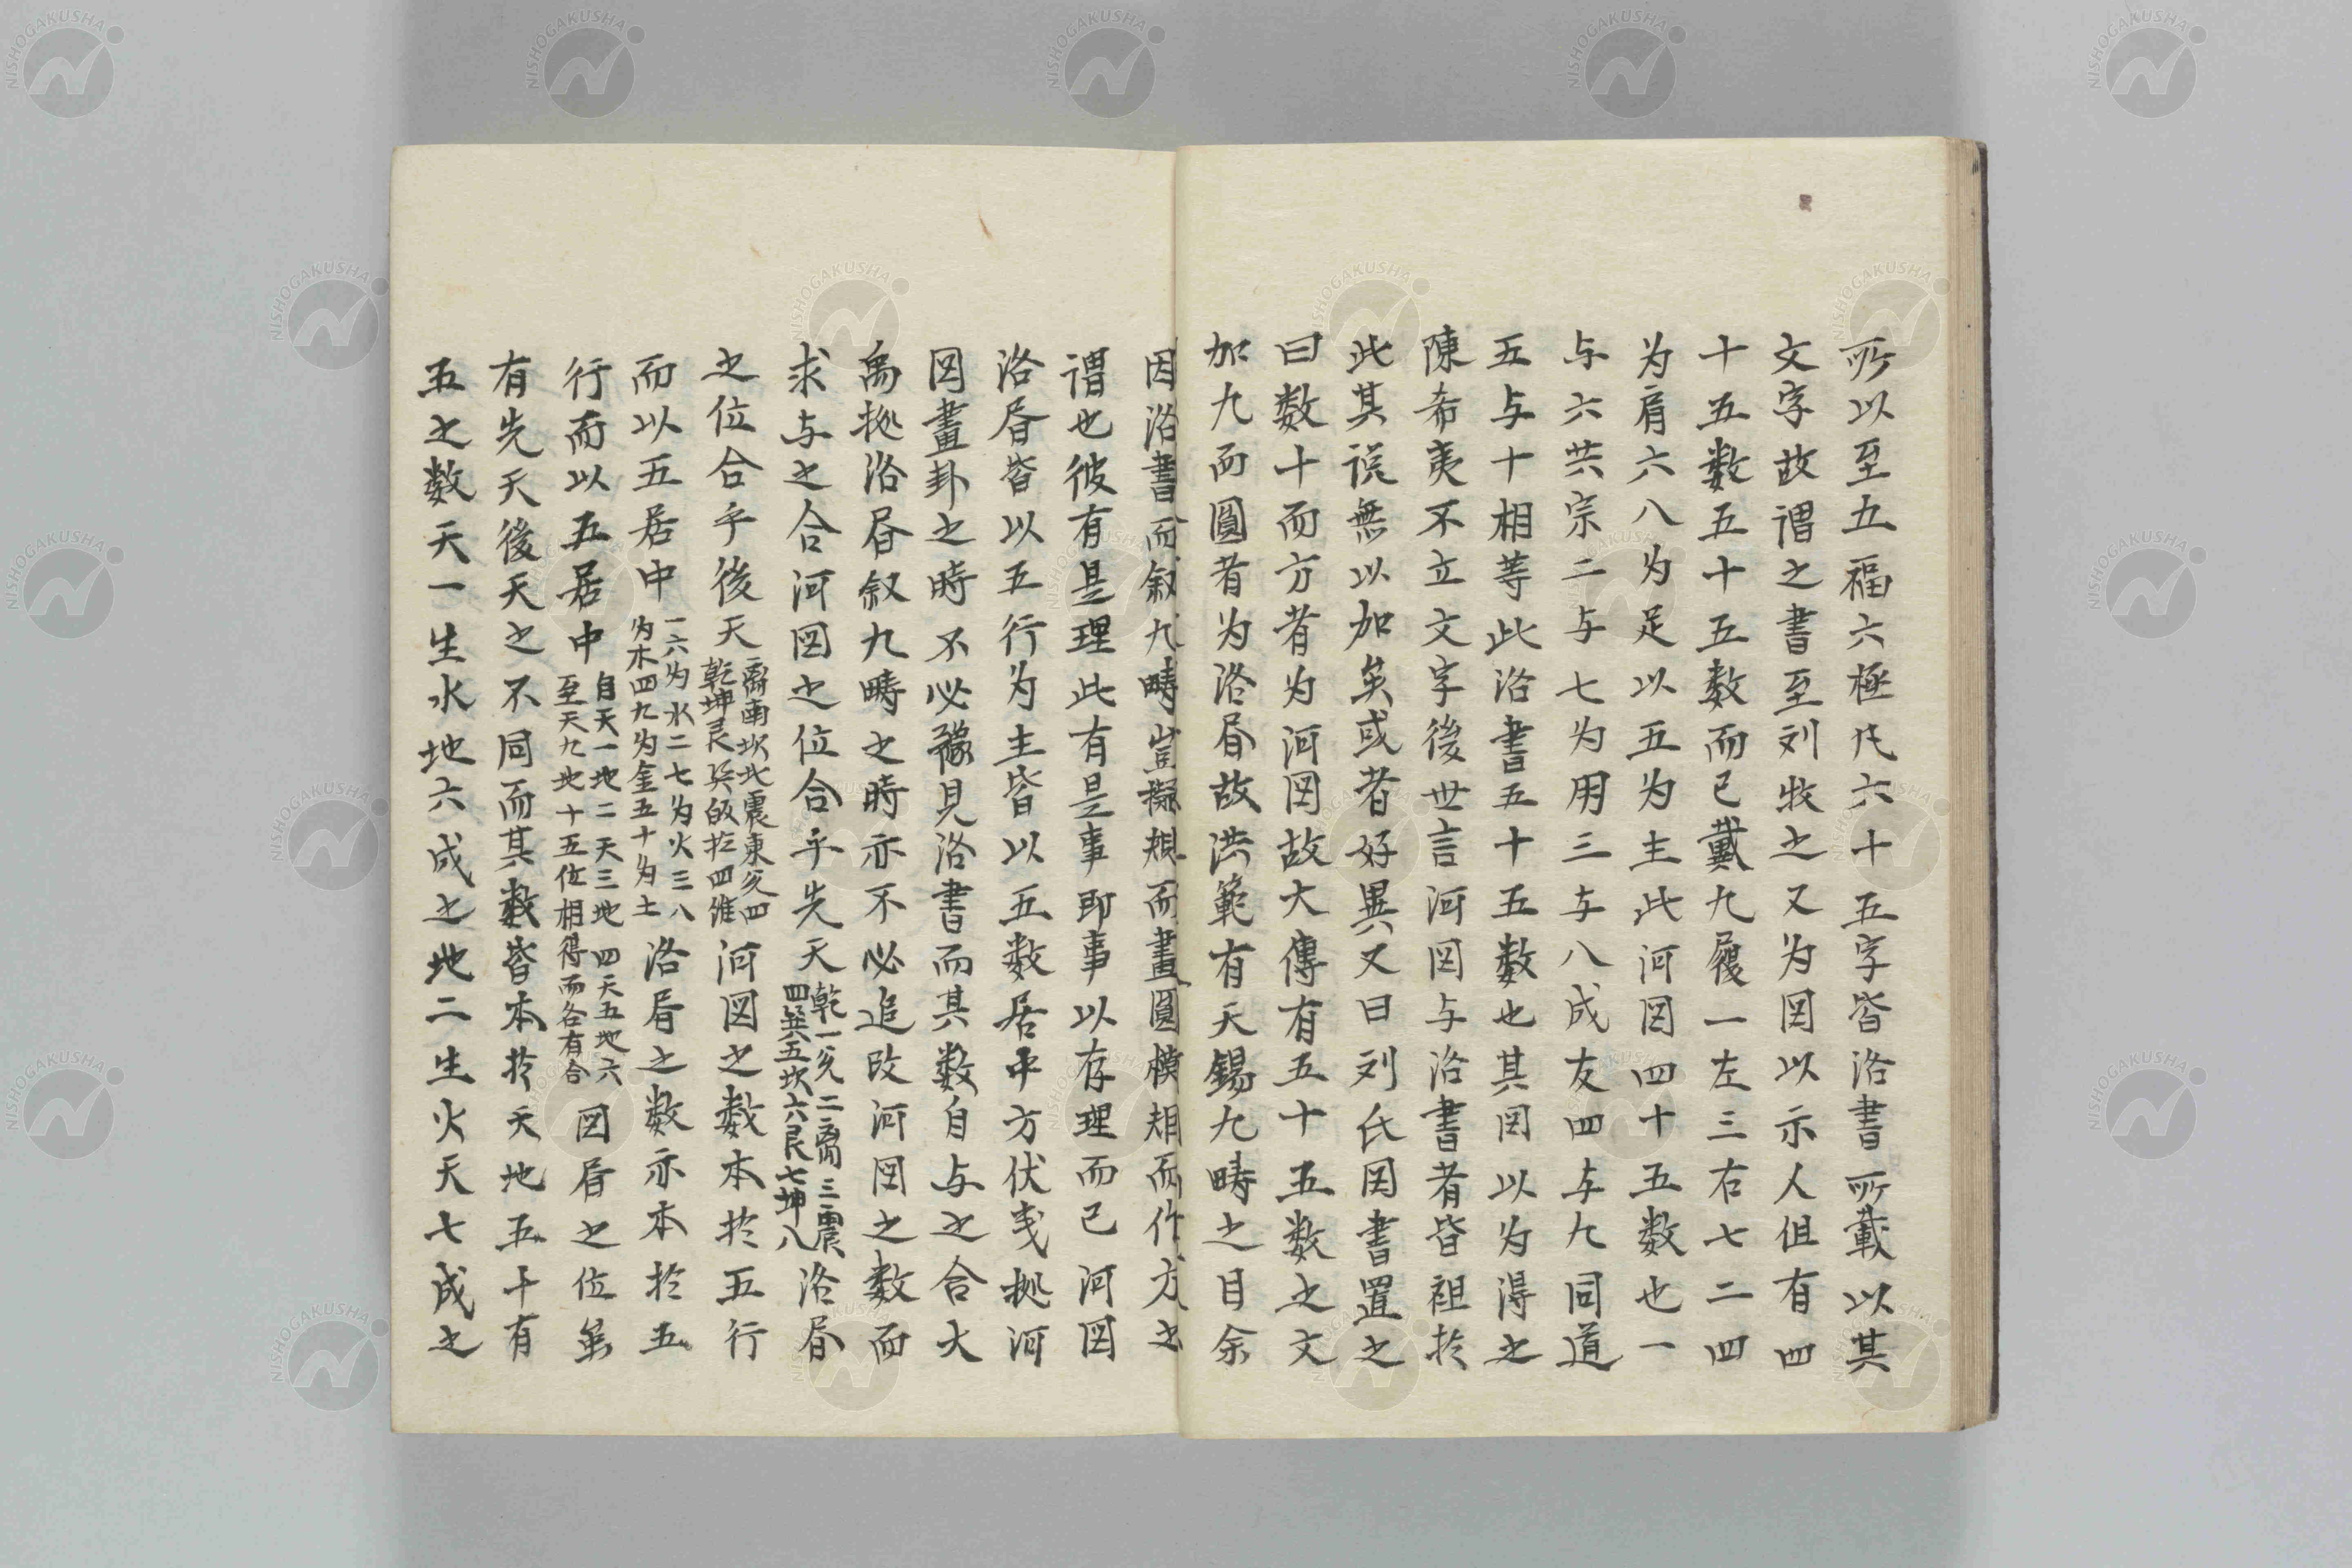 所以至五福六極凡六十五字皆洛書所載以其
文字故谓之書至刘牧之又为図以示人但有四
十五数五十五数而已戴九履一左三右七二四
为肩六八为足以五为主此河図四十五数也一
与六共宗二与七为用三与八成友四与九同道
五与十相等此洛書五十五数也其図以为得之
陳希夷不立文字後世言河図与洛書者皆祖扵
此其説無以加矣或者好異又曰刘氏図書置之
曰数十而方者为河図故大傳有五十五数之文
加九而圓者为洛㫺故洪範有天錫九畴之目余
因洛書而叙九畴豈擬規而畫圓模矩而作方之
谓也彼有是理此有是事即事以存理而已河図
洛㫺皆以五行为主皆以五数居中方伏羲拠河
図畫卦之時不必豫見洛書而其数自与之合大
禹拠洛㫺叙九畴之時亦不必追改河図之数而
求与之合河図之位合乎先天乾一兊二離三震四巽五坎六艮七坤八洛㫺
之位合乎後天離南坎北震東兊西乾坤艮巽皈扵四維河図之数本扵五行
而以五居中一六为水二七为火三八为木四九为金五十为土洛㫺之数亦本扵五
行而以五居中自天一地二天三地四天五地六至天九地十五位相得而各有合図㫺之位虽
有先天後天之不同而其数皆本扵天地五十有
五之数天一生水地六成之地二生火天七成之